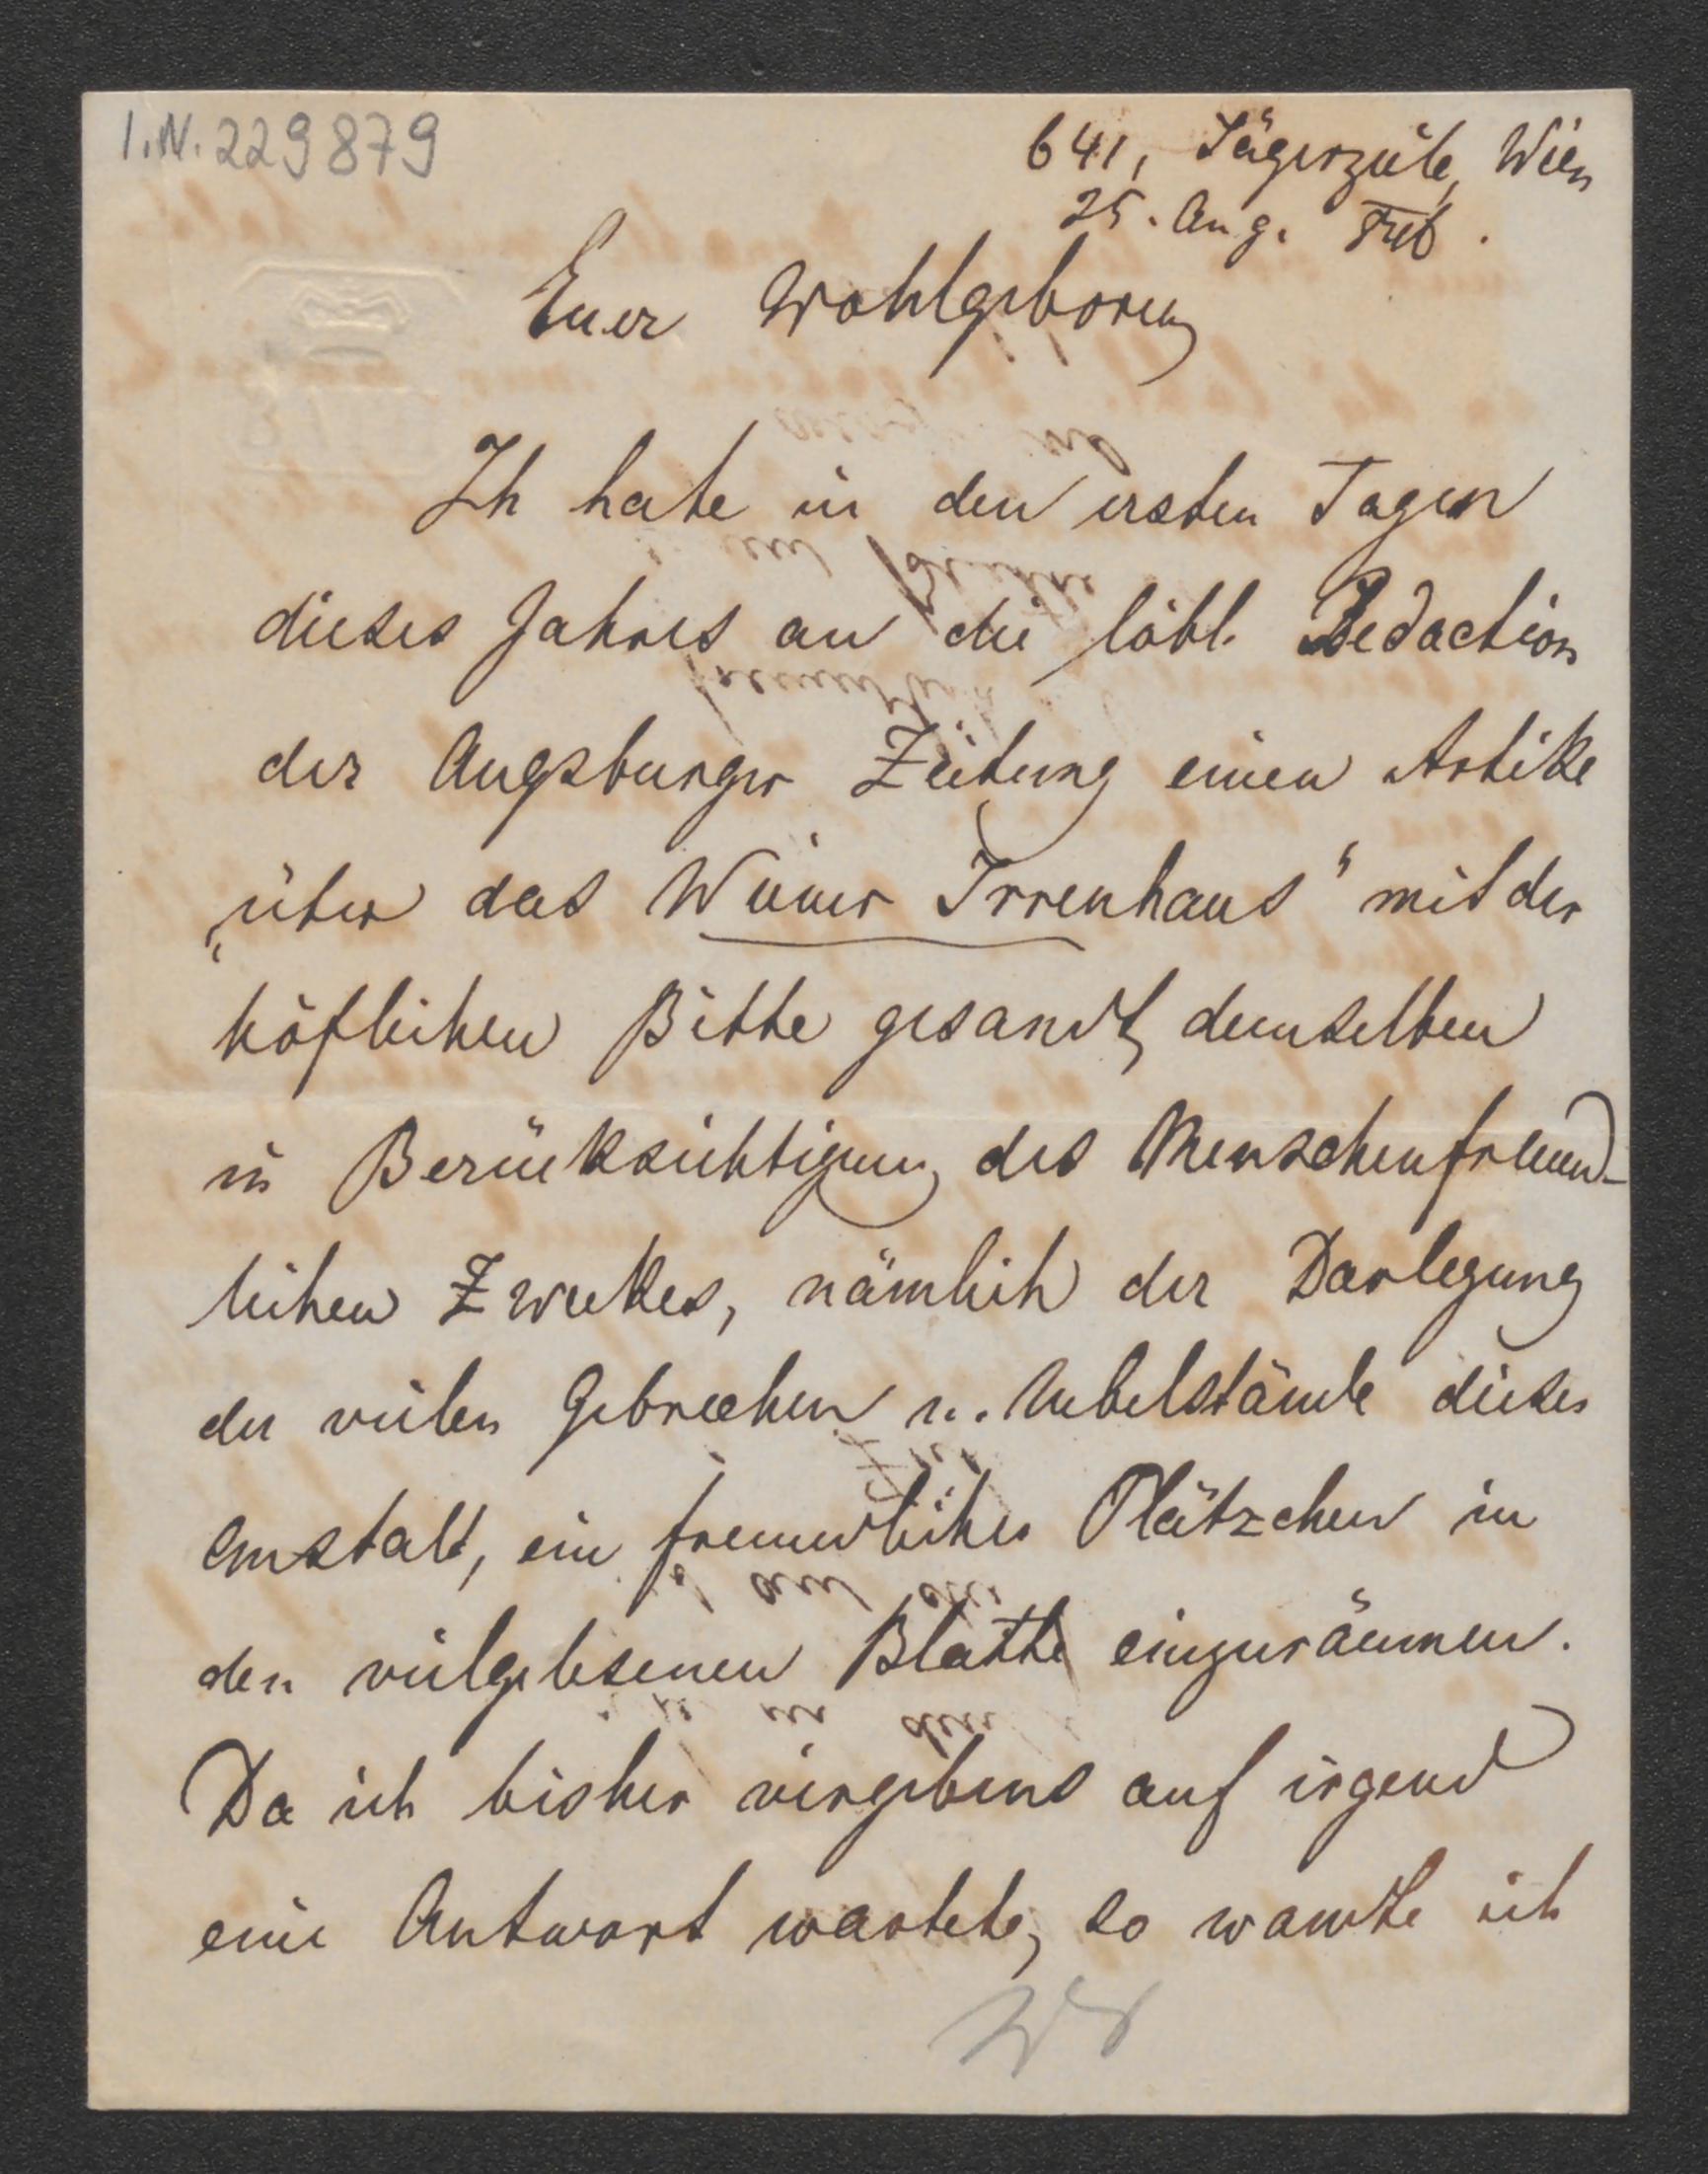 I.N. 229879
641, Jägerzeile, Wien
25. Aug.
Euer Wohlgeboren
Ich habe in den ersten Tagen
dieses Jahres an die löbl. Redaction
der Augsburger Zeitung einen Artikel
„über das Wiener Irrenhaus" mit der
höflichen Bitte gesandt, demselben
in Berücksichtigung des Menschenfreund-
lichen Zweckes, nämlich der Darlegung
der vielen Gebrechen u. Uebelstände dieser
Anstalt, ein freundliches Plätzchen in
den vielgelesenen Blatte einzuräumen.
Da ich bisher vergebens auf irgend
eine Antwort wartete, so wandte ich